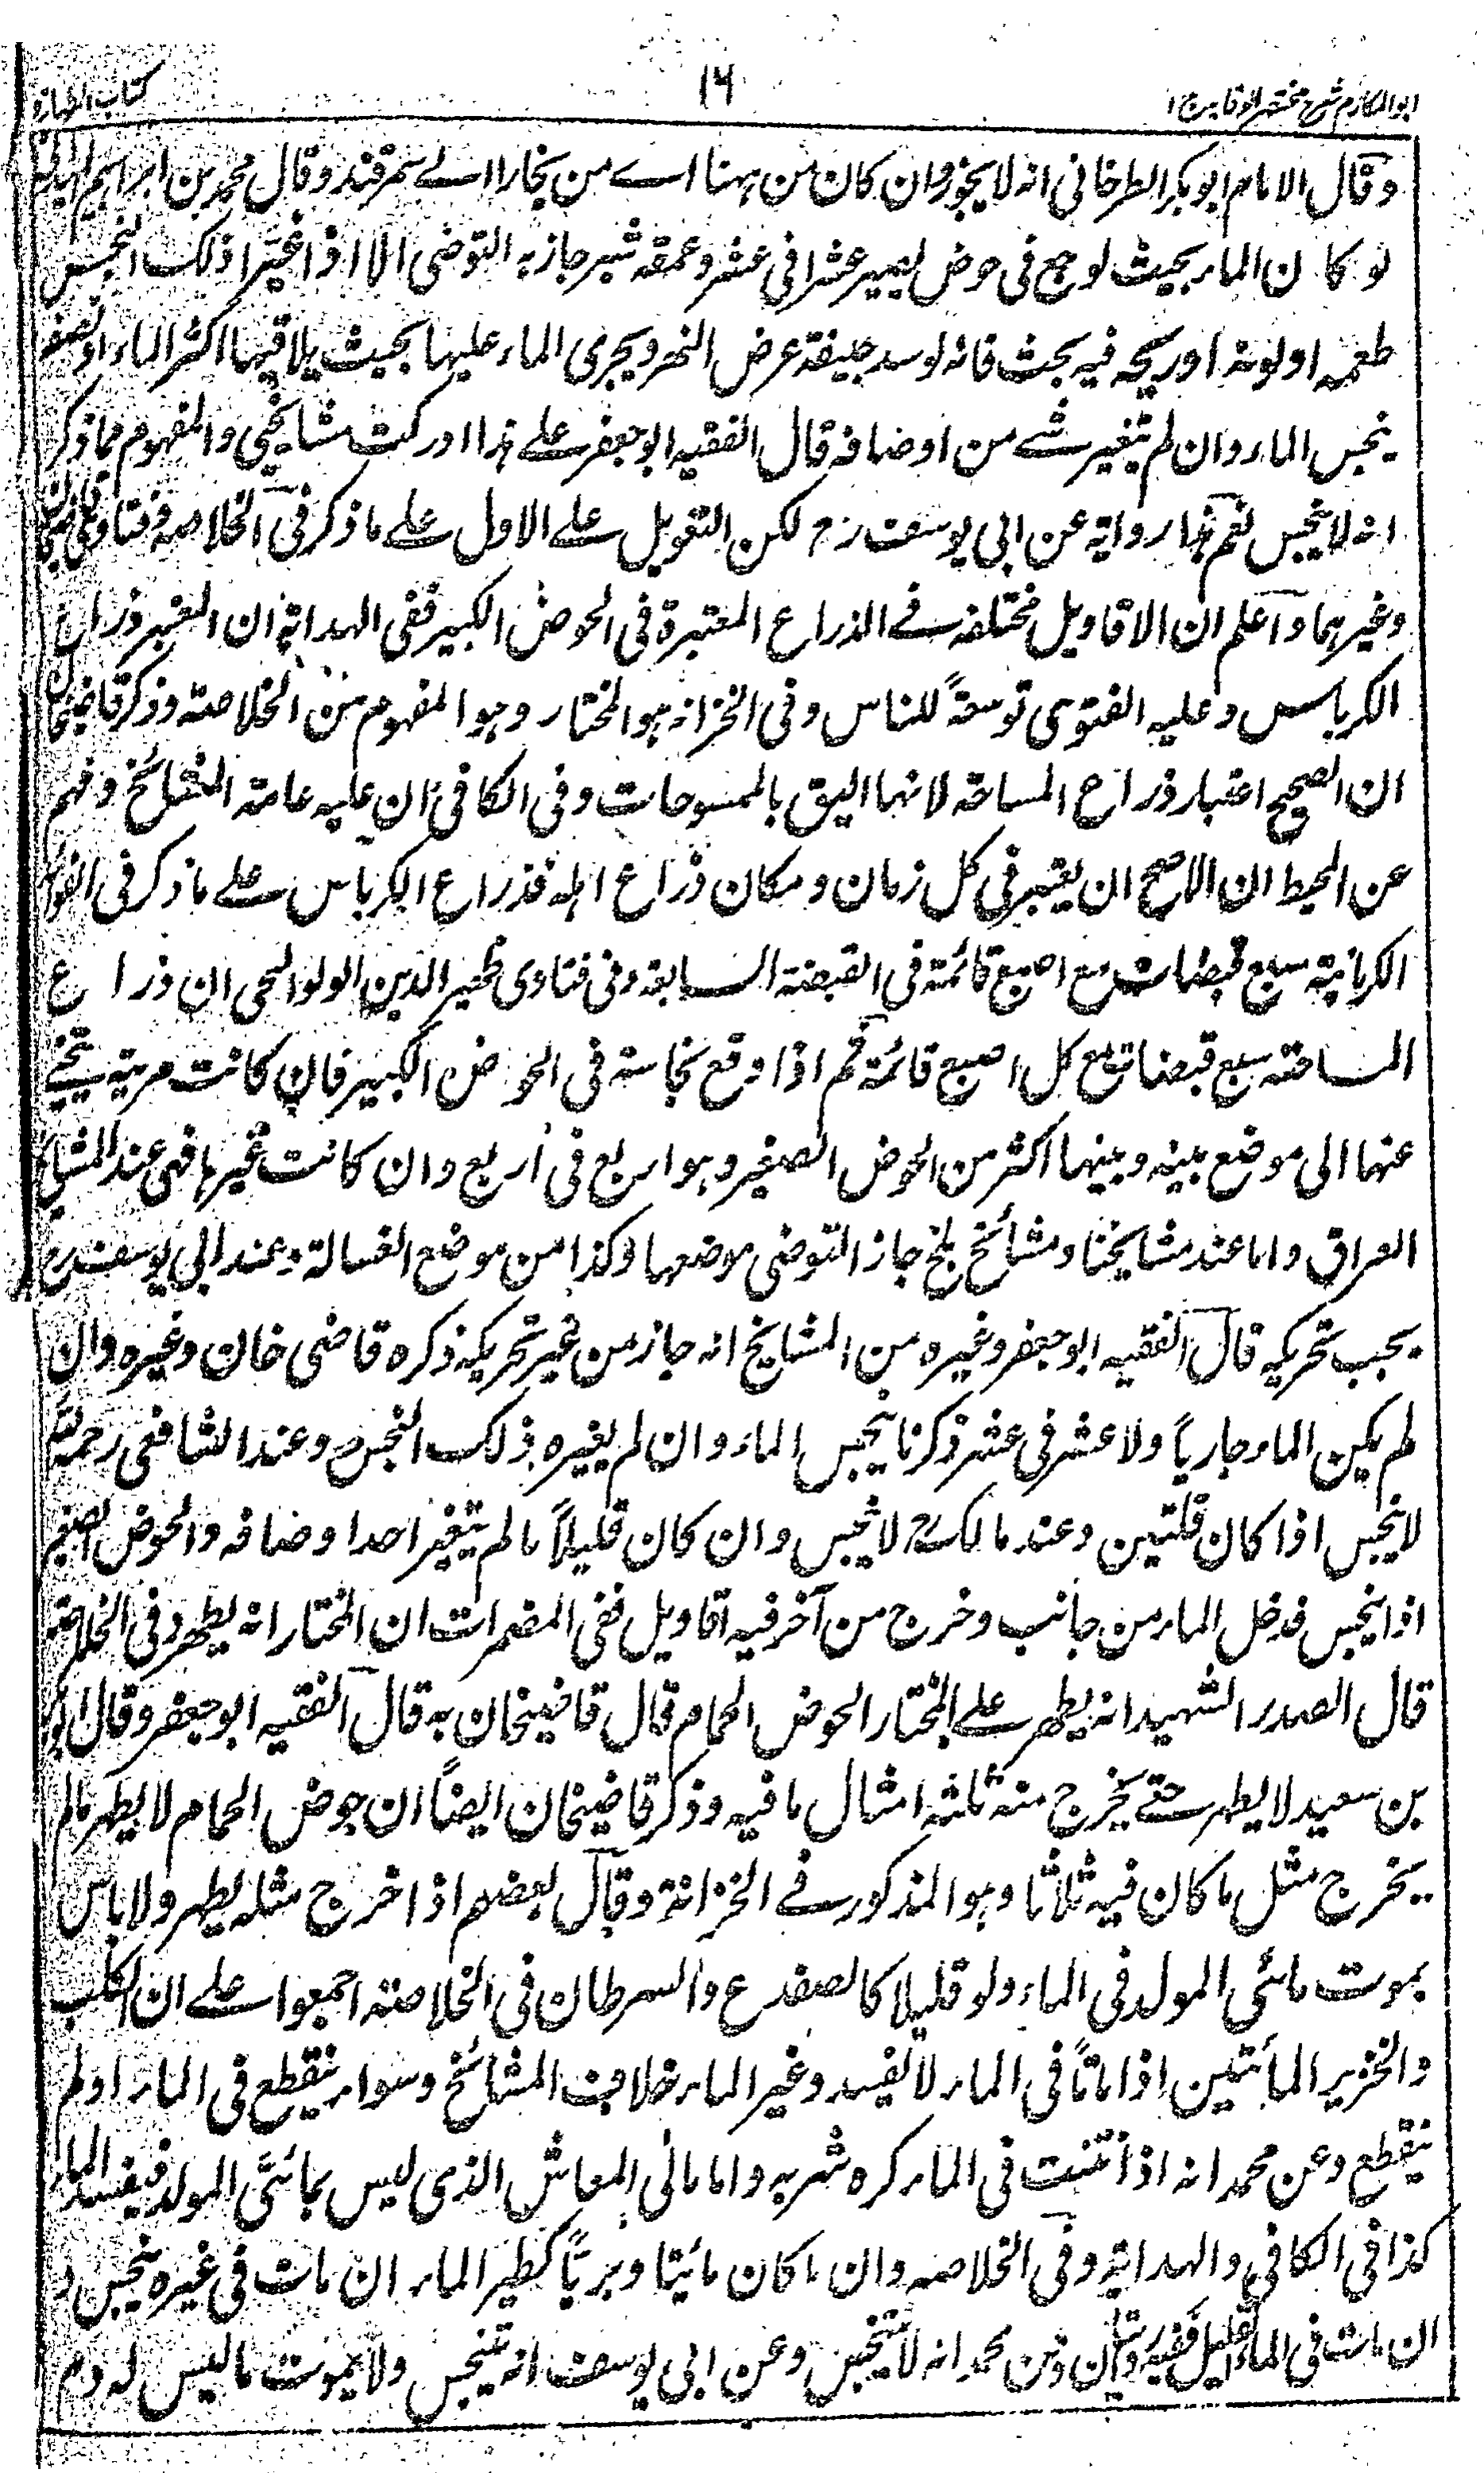 ابو المكارم شرح مختصر الوقاية ج ١
١٦
كتاب الطهارة
وقال الامام ابو بكر الطرخانى انه لا يجوز وان كان من ههنا اے من بخارا الے سمرقند وقال محمد بن ابراهيم
لو كان الماء بحيث لو جمع فى حوض ليصير عشرا فى عشر وعمقه شبر جاز به التوضى الا اذا غير اذلك النجس
طعمه او لونه او ريحه فيه بحث فانه لو سد جيفة عرض النهر ويجرى الماء عليها بحيث يلاقيها اكثر الماء او نصفه
ينجس الماء وان لم يتغير شے من اوصافه قال الفقيه ابو جعفر علے هذا ادركت مشايخى والمفهوم مما ذكر
انه لا ينجس نعم هذا رواية عن ابى يوسف رح لكن التعويل علے الاول علے ما ذكر فى الخلاصة وفتاوى
وغيرهما واعلم ان الاقاويل مختلفة فے الذراع المعتبرة فى الحوض الكبير ففى الهداية ان المعتبر ذراع
الكرباس وعليه الفتوى توسعةً للناس وفى الخزانة هو المختار وهو المفهوم من الخلاصة وذكر قاضيخان
ان الصحيح اعتبار ذراع المساحة لانها اليق بالممسوحات وفى الكافى ان عليه عامة المشائخ وفهم
عن المحيط ان الاصح ان يعتبر فى كل زمان ومكان ذراع اهله فذراع الكرباس علے ما ذكر فى
الكرمانية سبع قبضات مع اصبع قائمة فى القبضة السابعة وفى فتاوى ظهير الدين الولوالجى ان ذراع
المساحة سبع قبضات مع كل اصبع قائمة ثم اذا وقع نجاسة فى الحوض الكبير فان كانت مرية يتنحے
عنها الى موضع بينه وبينها اكثر من الحوض الصغير وهو اربع فى اربع وان كانت غيرها فهى عند المشايخ
العراق واما عند مشايخنا ومشائخ بلخ جاز التوضى موضعها وكذا من موضع الغسالة وعند ابى يوسف رح
يجب تحريكه قال الفقيه ابو جعفر وغيره من المشايخ انه جاز من غير تحريكه ذكره قاضى خان وغيره وان
لم يكن الماء جارياً ولا عشر فى عشر ذكرنا ينجس الماء وان لم يغيره ذلك النجس وعند الشافعى رحمه الله
لا ينجس اذا كان قلتين وعند مالك رح لا ينجس وان كان قليلاً ما لم يتغير احد اوصافه والحوض الصغير
اذا ينجس فدخل الماء من جانب وخرج من آخر فيه اقاويل ففى المضمرات ان المختار انه يطهر وفى الخلاصة
قال الصدر الشهيد انه يطهر علے المختار الحوض الحمام قال قاضيخان به قال الفقيه ابو جعفر وقال ابو
بن سعيد لا يطهر حتے يخرج منه ثلثة امثال ما فيه وذكر قاضيخان ايضاً ان حوض الحمام لا يطهر ما لم
يخرج مثل ما كان فيه ثلاثا وهو المذكور فے الخزانة وقال بعضهم اذا خرج مثله يطهر ولا باس
بموت مائى المولد فى الماء ولو قليلا كالضفدع والسرطان فى الخلاصة اجمعوا علے ان الكلب
والخنزير المائيين اذا ماتا فى الماء لا يفسد وغير الماء خلاف المشائخ وسواء ينقطع فى الماء او لم
ينقطع وعن محمد انه اذا تفتت فى الماء كره شربه واما مائى المعاش الذى ليس بمائى المولد فيفسد الماء
كذا فى الكافى والهداية وفى الخلاصه وان ما كان مائيتا وبرياً كطير الماء ان مات فى غيره ينجس و
ان مات فى الماء القليل ففيه روايتان وعن محمد انه لا يتنجس وعن ابى يوسف انه يتنجس ولا بموت ما ليس له دم